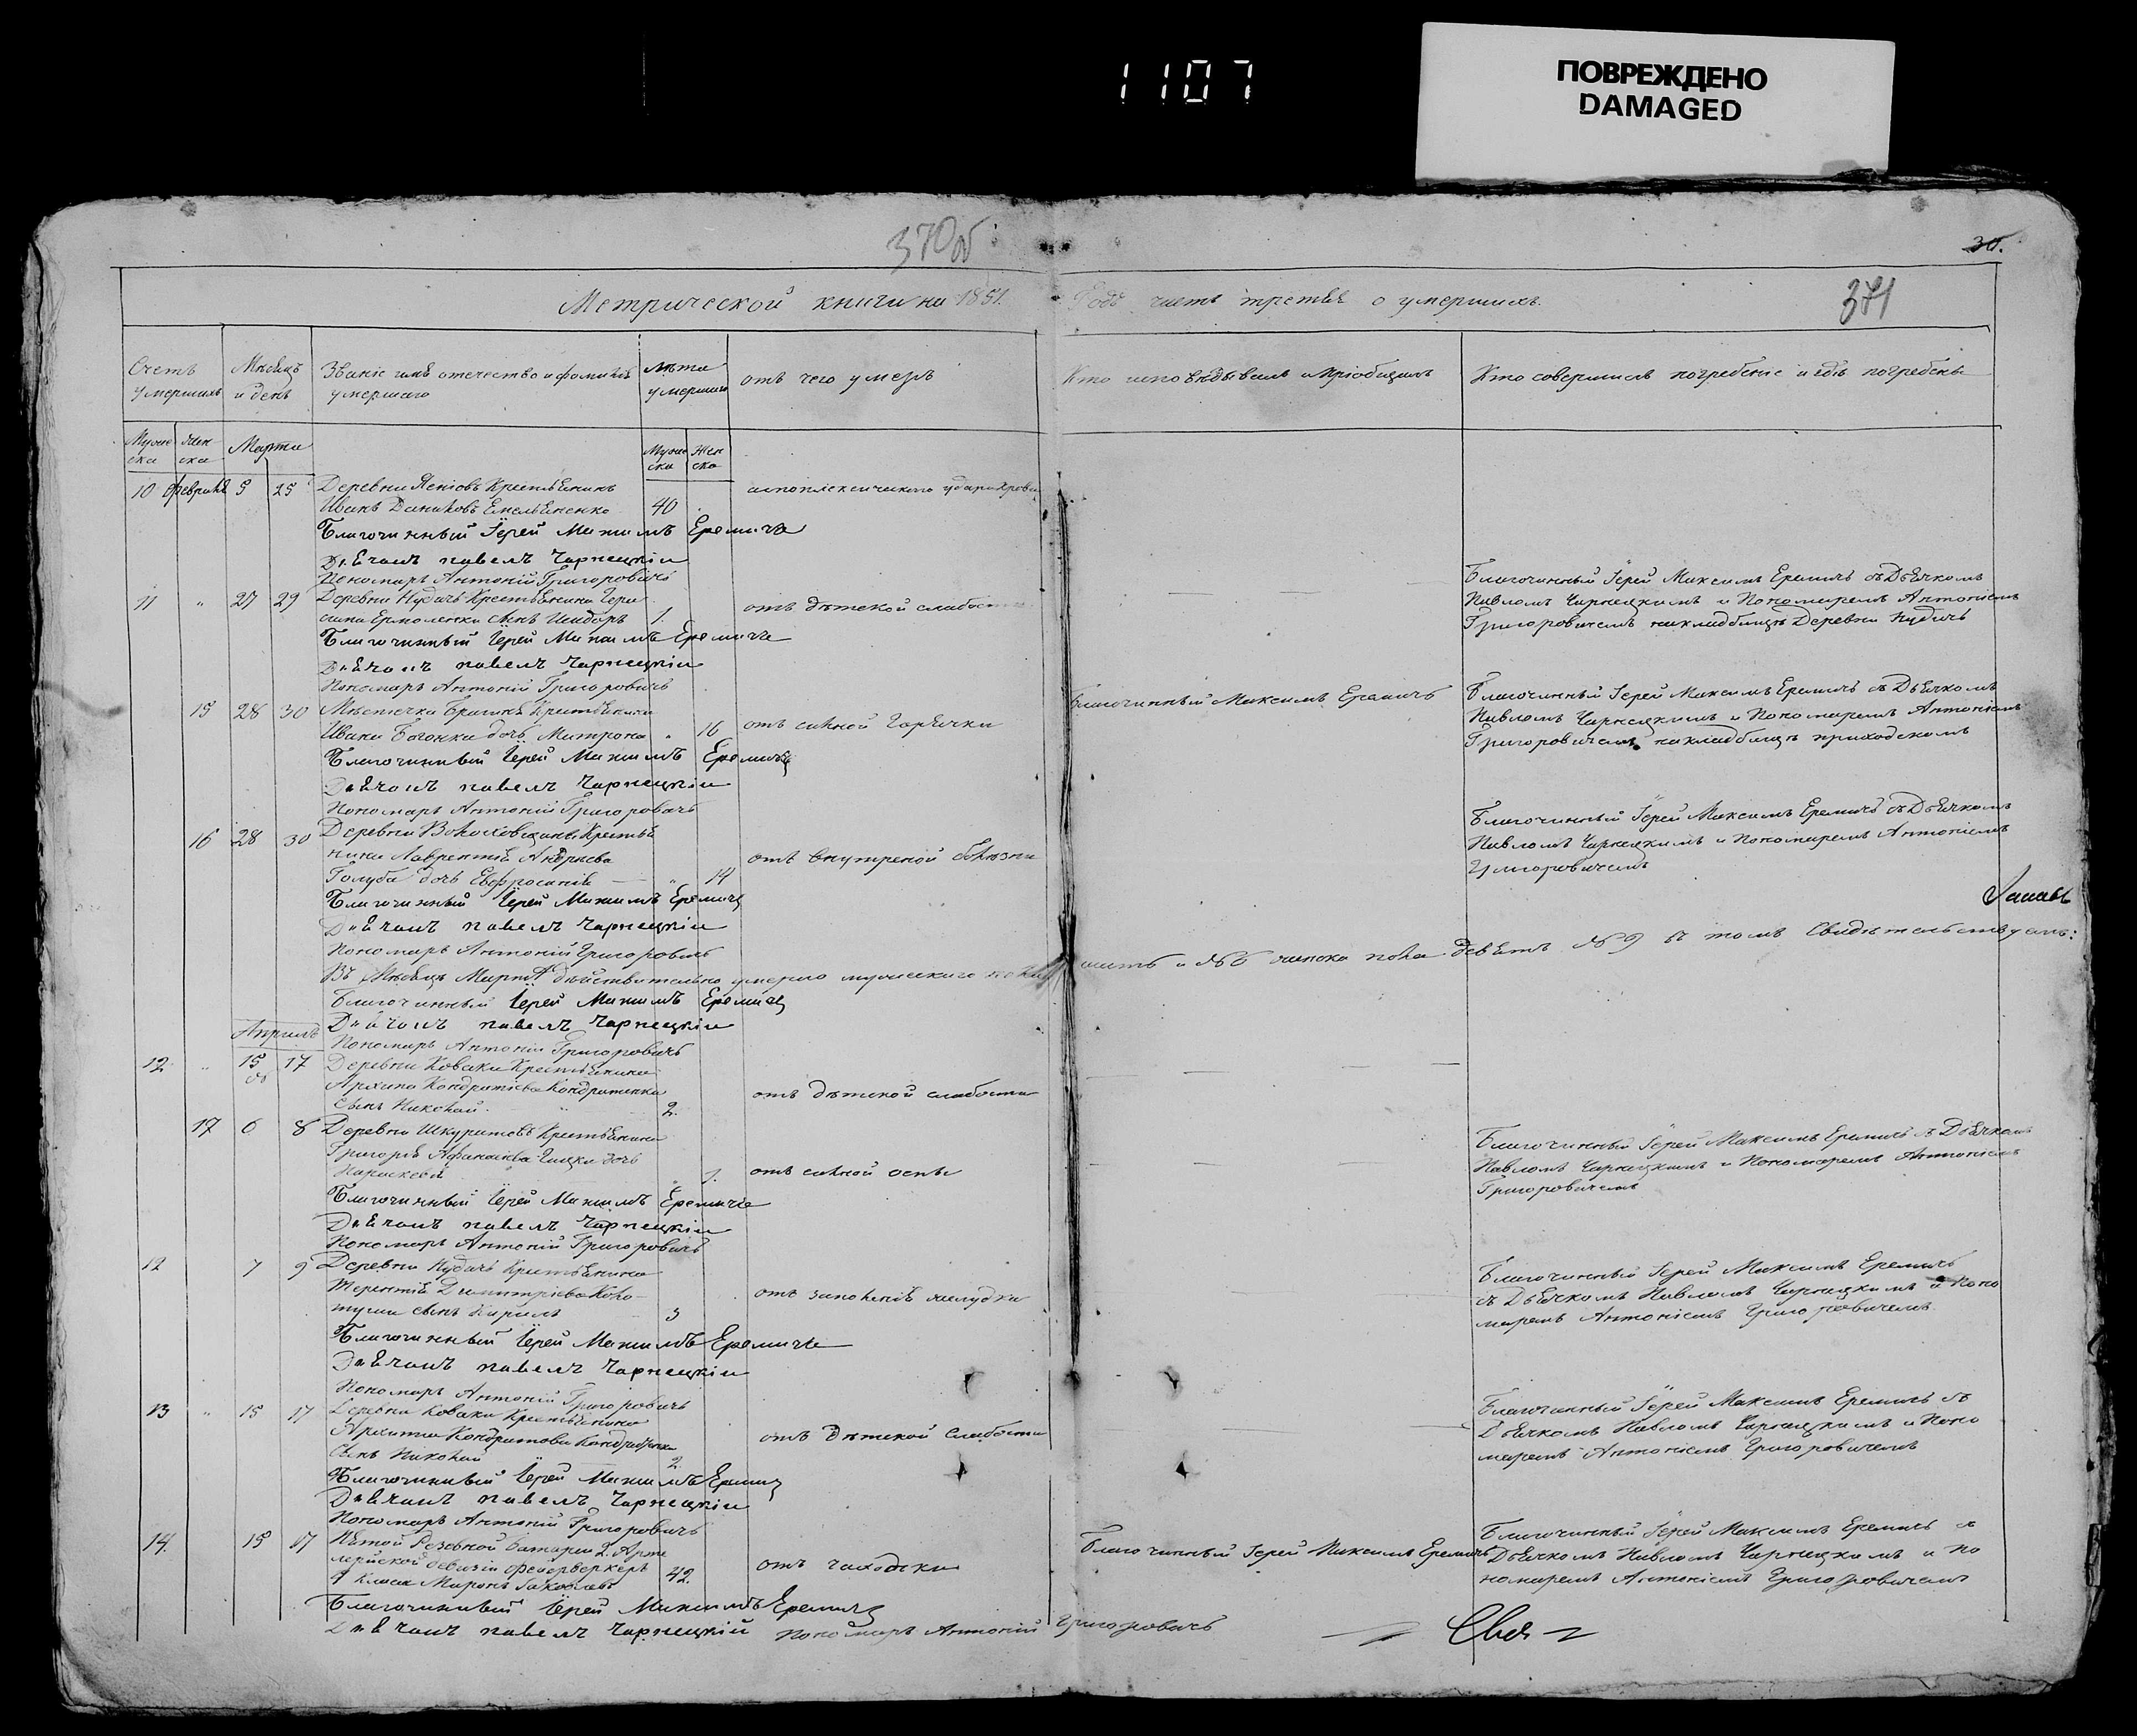 1107
ПОВРЕЖДЕНО
DAMAGED
370об
30.
371
Метрической книги на 1851.
Годъ часть третья о умершихъ.
Счетъ умершихъ
Мѣсяцъ и день
Званіе имя отечество и фамилія умершаго
Лѣта умершаго
отъ чего умеръ
Кто исповѣдывалъ и пріобщалъ
Кто совершилъ погребеніе и гдѣ погребены
Муже ска
Жен ска
Марта
Муже ска
Жен ска
10 февраля 5 25 Деревни Крестьянинъ
Иванъ Емельяненко 40
апоплексического удара крови
Благочинный Іерей Максимъ Еремичъ
Дьячокъ павелъ Чарнецкіи
Пономарь Антоній Григоровичъ
11 " 27 29 Деревни Нудичъ Крестьянина
Ермоленки сынъ Исидоръ 1.
отъ дѣтской слабости
Благочинный Іерей Максимъ Еремичъ съ Дьячкомъ
Павломъ Чарнецкимъ и Пономаремъ Антоніемъ
Григоровичемъ на кладбищѣ Деревни Нудичъ
Благочинный Іерей Максимъ Еремичъ
Дьячокъ павелъ Чарнецкіи
Пономарь Антоній Григоровичъ
15 28 30 Мѣстечка Брагина Крестьянина
Ивана дочь Матрона " 16
отъ сильной Горячки
Благочинный Максимъ Еремичъ
Благочинный Іерей Максимъ Еремичъ съ Дьячкомъ
Павломъ Чарнецкимъ и Пономаремъ Антоніемъ
Григоровичемъ на кладбищѣ приходскомъ
Благочинный Іерей Максимъ Еремичъ
Дьячокъ павелъ Чарнецкіи
Пономарь Антоній Григоровичъ
16 28 30 Деревни Крестья
нина Лаврентія Андреева
Голуба дочь Евфросинія " 14
отъ внутреной болѣзни
Благочинный Іерей Максимъ Еремичъ съ Дьячкомъ
Павломъ Чарнецкимъ и Пономаремъ Антоніемъ
Григоровичемъ
Благочинный Іерей Максимъ Еремичъ
Дьячокъ павелъ Чарнецкіи
Пономарь Антоній Григоровичъ
Въ Мѣсяцѣ Мартѣ дѣйствительно умерло мужескаго пола шесть и №6 женска пола девять №9 въ томъ Свидѣтельствуемъ:
Благочинный Іерей Максимъ Еремичъ
Дьячокъ павелъ Чарнецкіи
Пономарь Антоній Григоровичъ
Апрель
12 " 15 17 Деревни Коваки Крестьянина
Архипа Кондратіева Кондратенка
сынъ Николай 2.
отъ дѣтской слабости
17 6 8 Деревни Шкуратовъ Крестьянина
Григорія Афанасіева дочь
Параскева 1.
отъ сильной оспы
Благочинный Іерей Максимъ Еремичъ съ Дьячкомъ
Павломъ Чарнецкимъ и Пономаремъ Антоніемъ
Григоровичемъ
Благочинный Іерей Максимъ Еремичъ
Дьячокъ павелъ Чарнецкіи
Пономарь Антоній Григоровичъ
12 7 9 Деревни Нудичъ Крестьянина
Терентія Димитріева Коло
туши сынъ Кирилъ 3
отъ желудка
Благочинный Іерей Максимъ Еремичъ
съ Дьячкомъ Павломъ Чарнецкимъ и Поно
маремъ Антоніемъ Григоровичемъ
Благочинный Іерей Максимъ Еремичъ
Дьячокъ павелъ Чарнецкіи
Пономарь Антоній Григоровичъ
13 " 15 17 Деревни Коваки Крестьянина
Архипа Кондратова Кондратенка
Сынъ Николай 2.
отъ Дѣтской Слабости
Благочинный Іерей Максимъ Еремичъ съ
Дьячкомъ Павломъ Чарнецкимъ и Поно
маремъ Антоніемъ Григоровичемъ
Благочинный Іерей Максимъ Еремичъ
Дьячокъ павелъ Чарнецкіи
Пономарь Антоній Григоровичъ
14. 15 17 Резевной батареи 2. Арти
лерійской девизіи фейерверкеръ
4 класа Миронъ Яковлевъ 42.
отъ чахотки
Благочинный Іерей Максимъ Еремичъ
Благочинный Іерей Максимъ Еремичъ съ
Дьячкомъ Павломъ Чарнецкимъ и По
номаремъ Антоніемъ Григоровичемъ
Благочинный Іерей Максимъ Еремичъ
Дьячокъ павелъ Чарнецкій Пономарь Антоній Григоровичъ